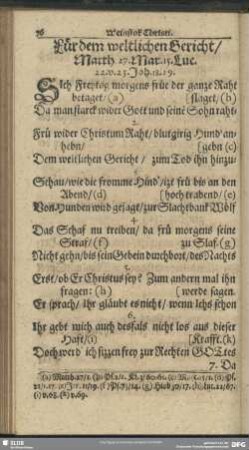 76
Für dem weltlichen Gericht/
Matth. 27. Mar. 15. Luc.
22. v. 23. Joh. 18. 19.
Sich Freytag morgens früe der ganze Raht
betaget/ (a) [klaget/ (b)
Da man starck wider Gott und seine Sohn raht-
2.
Frü wider Christum Raht/ blutgirig Hund' an-
hebn/ [gebn (c)
Dem weltlichen Gericht/ zum Tod ihn hinzu/
3.
Schau/ wie die fromme Hind' itzt frü bis an den
Abend/ (d) [hoch trabend/ (e)
Von Hunden wird gejagt/ zur Slachtbank Wölf
4.
Das Schaf nu treiben/ da frü morgens seine
Straf/ (f) zu Slaf. (g)
Nicht gehn/ bis sein Gebein durchbort/ des Nachts
5.
Erst/ ob Er Christus sey? Zum andern mal ihn
fragen: (h) [werde sagen.
Er sprach/ Ihr gläubt es nicht/ wenn Ichs schon
6.
Ihr gebt mich auch desfals nicht los aus dieser
Haft/ (i) [Krafft. (k)
Doch werd ich sizzen frey zur Rechten GOttes
7. Da